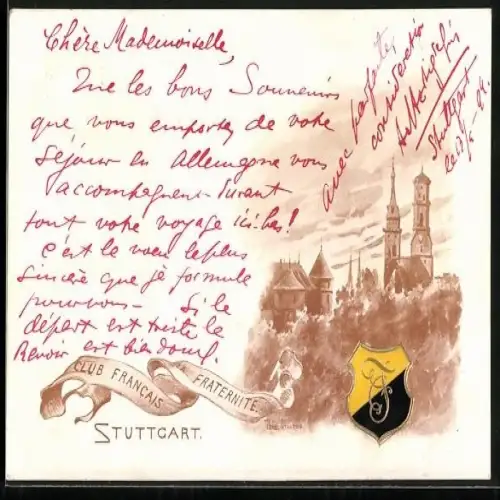 Chère Mademoiselle,
Que les bons Souvenirs
que vous emportez de votre
séjour en Allemagne vous
accompagnent durant
tout votre voyage ici-bas!
C'est le voeu le plus
sincère que je formule
pour vous - Si le
départ est triste le
Revoir est bien doux!
avec parfaite
Stuttgart
CLUB FRANÇAIS FRATERNITÉ.
STUTTGART.